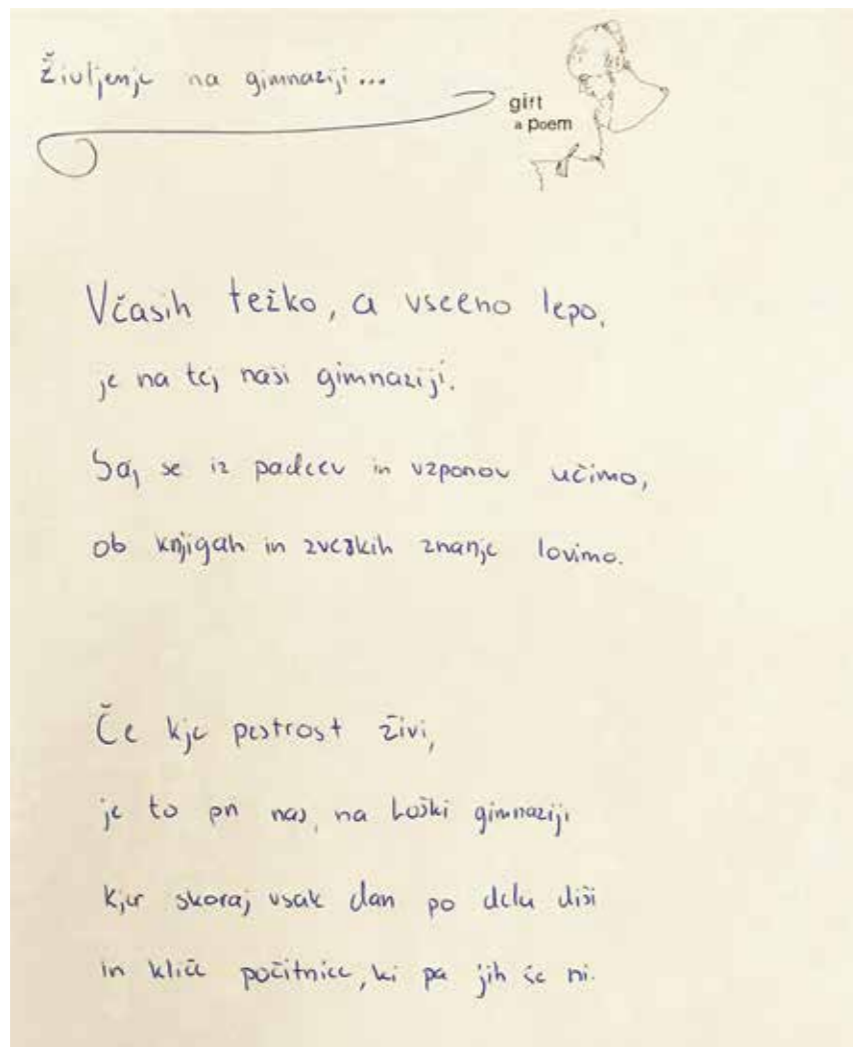 Življenje na gimnaziji...
gift
a poem
Včasih težko, a vseeno lepo,
je na tej naši gimnaziji.
Saj se iz padcev in vzponov učimo,
ob knjigah in zvezkih znanje lovimo.
Če kje pestrost živi,
je to pri nas, na Loški gimnaziji
kjer skoraj vsak dan po delu diši
in kliče počitnice, ki pa jih še ni.